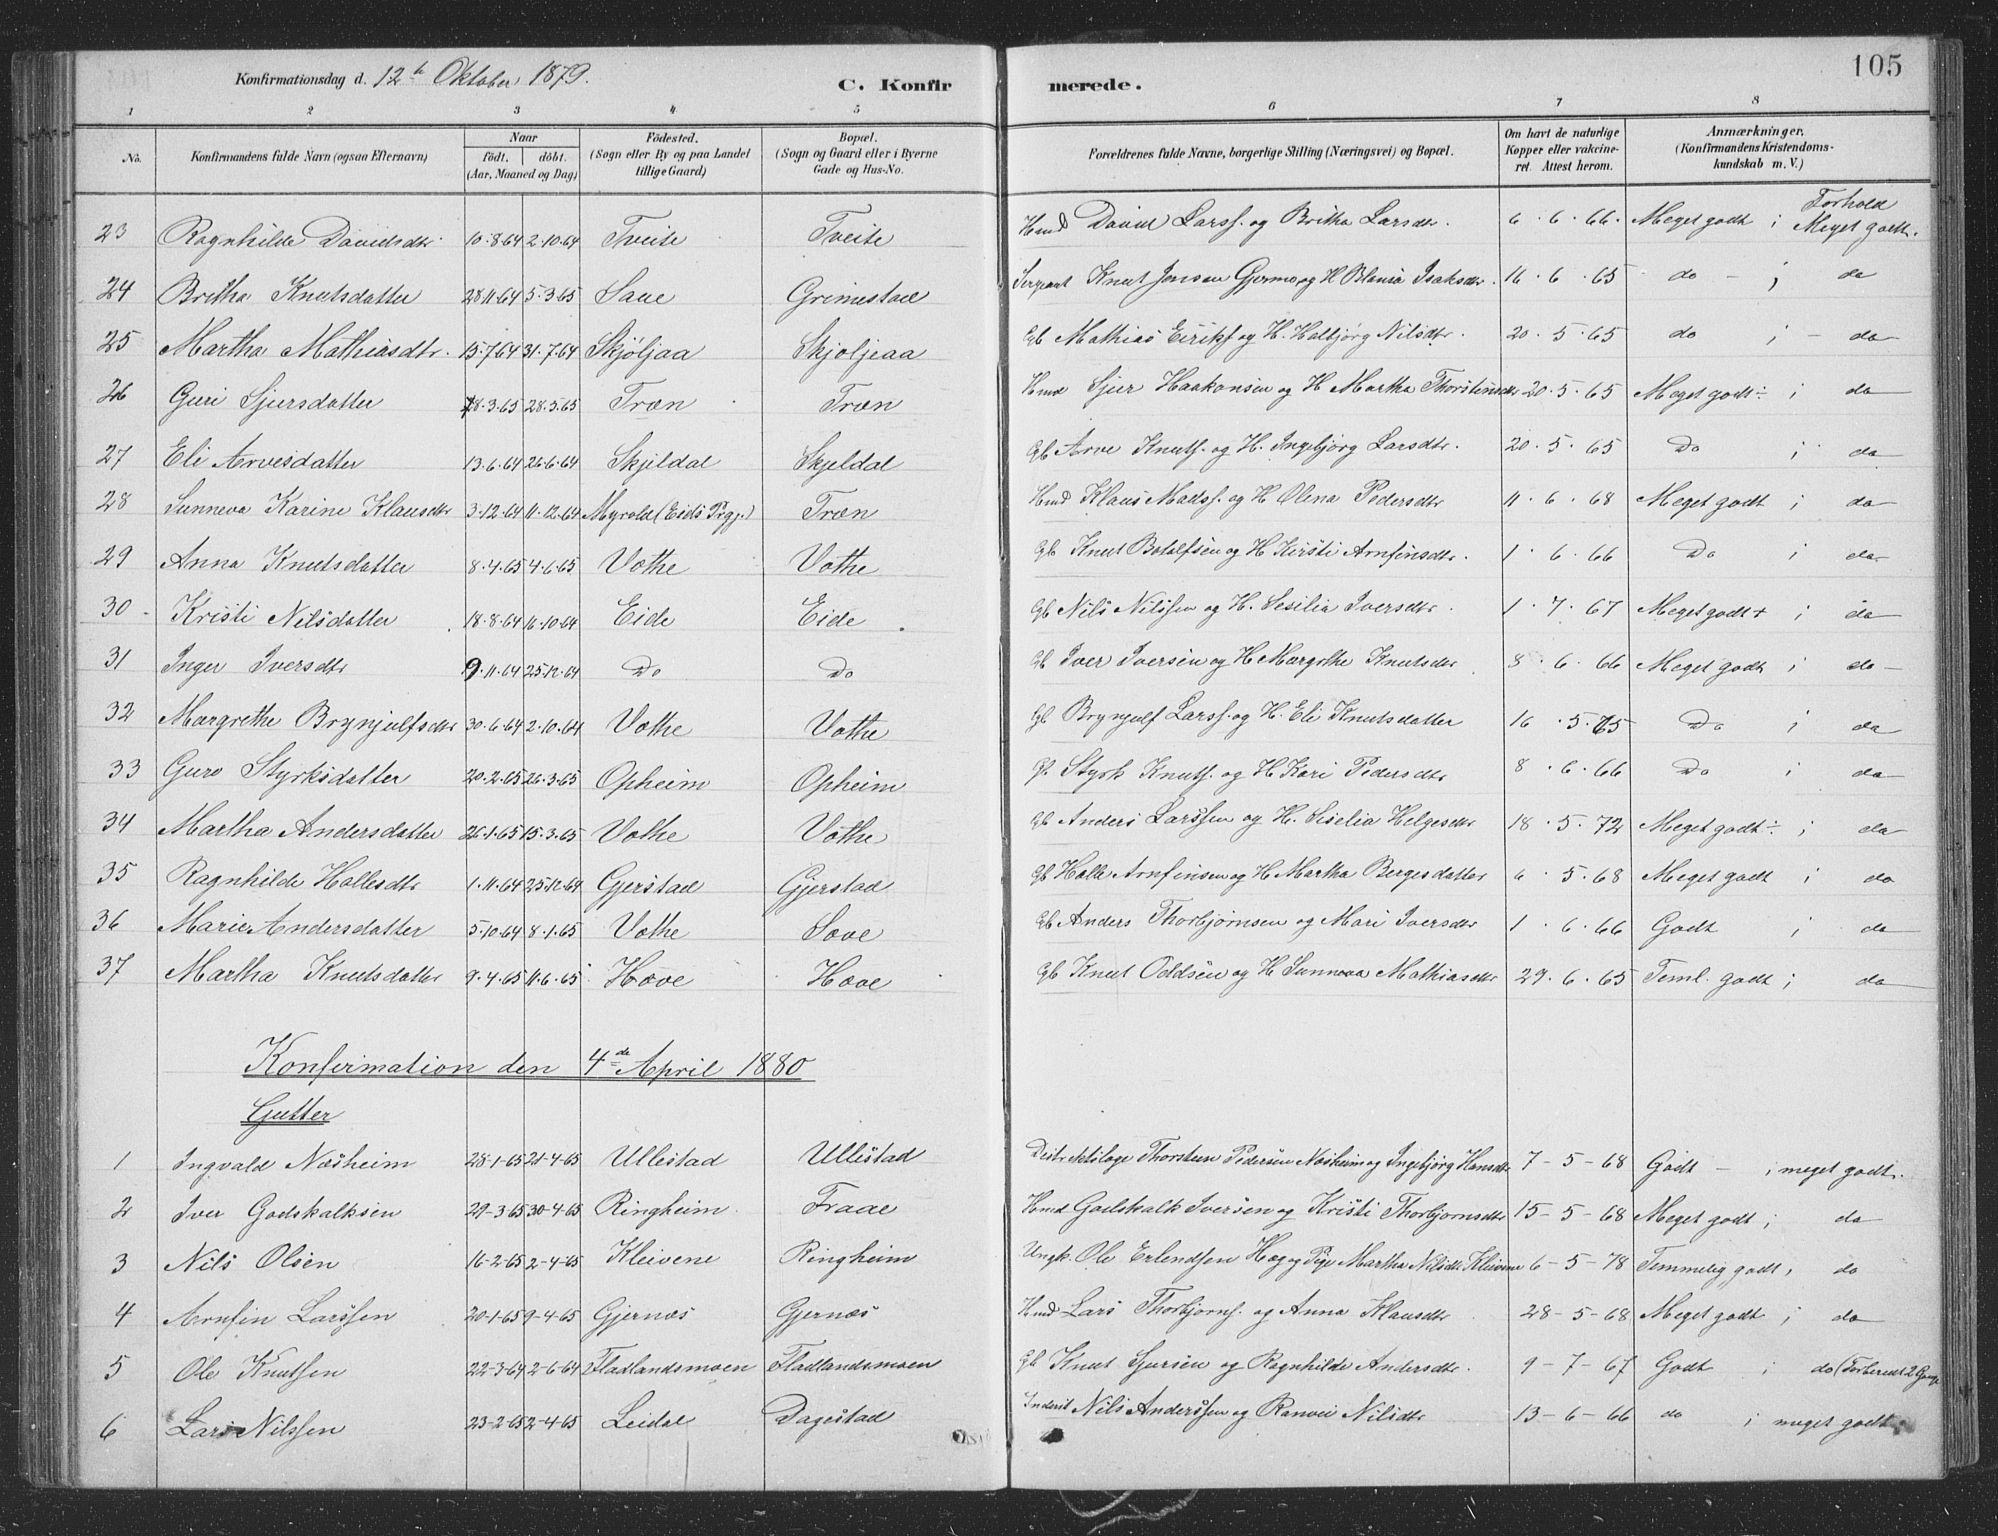 Konfirmationsdag d. 12te Oktober 1879. C. Konfir merede. 105
1 2 3 4 5 6 7 8
No. Konfirmandens fulde Navn (ogsaa Efternavn) Naar födt. döbt. (Aar, Maaned og Dag) Födested. (Sogn eller By og paa Landet tillige Gaard) Bopæl. (Sogn og Gaard eller i Byerne Gade og Hus-No. Forældrenes fulde Navne, borgerlige Stilling (Næringsvei) og Bopæl. Om havt de naturlige Kopper eller vakcineret. Attest herom. Anmærkninger. (Konfirmandens Kristendomskundskab m. V.)
23 Ragnhilde Davidsdtr 10.8.64 2.10.64 Tveite Tveite Hmd David Larss. og Britha Larsdtr. 6.6.66. Meget godt ; Forhold Meget godt.
24 Britha Knutsdatter 28.11.64 5.3.65 Saue Grimestad Sergeant Knut Jonsen Gjerme og H Isaksdtr. 16.6.65 do - ; do
25 Martha Mathiasdtr. 15.7.64 31.7.64 Skjöljaa Skjoljeaa Gb Mathias Eiriks. og H. Holbjørg Nilsdtr. 20.5.65 do ; - do
26 Guri Sjursdatter 28.3.65 28.5.65 Træn Træn Hmd Sjur Haakonsen og H Martha Thorsteinsdtr 20.5.65 Meget godt ÷ ; do
27 Eli Arvesdatter 13.6.64 26.6.64 Skjeldal Skjeldal Gb Arve Knuts. og H. Ingebjørg Larsdtr. 20.5.65 Do ; do
28 Sunneva Karine Klausdtr 3.12.64 11.12.64 Myrold (Eids Prgj.) Træn Hmd Klaus Madss. og H Olena Pedersdtr 11.6.68 Meget godt ; do
29 Anna Knutsdatter 8.4.65 4.6.65 Vothe Vothe Gb Knut Botolfsen og H Kirsti Arnfinsdtr. 1.6.66 Do ; do
30 Kristi Nilsdatter 18.8.64 16.10.64 Eide Eide Gb Nils Nilssen og H. Sesilia Iversdtr. 1.7.67 Meget godt + ; do
31 Inger Iversdtr 9.11.64 25.12.64 Do Do Gb Iver Iversen og H Margrethe Knutsdtr 8.6.66 Meget godt ; do
32 Margrethe Brynjulfsdtr 30.6.64 2.10.64 Vothe Vothe Gb Brynjulf Larss. og H. Eli Knutsdatter 16.5.65 Do ; do
33 Guro Styrksdatter 20.2.65 26.3.65 Opheim Opheim Gb Styrk Knuts. og H Kari Pedersdtr 8.6.66 Do ; do
34 Martha Andersdatter 26.1.65 15.3.65 Vothe Vothe Gb Anders Larssen og H. Siselia Helgesdtr 18.5.72 Meget godt ÷ ; do
35 Ragnhilde Hallesdtr 1.11.64 25.12.64 Gjerstad Gjerstad Gb Halle Arnfinsen og H Martha Bergesdatter 6.5.68 Meget godt ; do
36 Marie Andersdatter 5.10.64 8.1.65 Vothe Sove Gb Anders Thorbjørnsen og Mari Iversdtr 1.6.66 Godt ; do
37 Martha Knutsdatter 9.4.65 11.6.65 Hæve Hæve Gb Knut Oddsen og H Sunneva Mathiasdtr 29.6.65 Teml. godt ; do
Konfirmation den 4de April 1880
Gutter
1 Ingvald Næsheim 28-1-65 21-4-65 Ullestad Ullestad Distriktslæge Thorstein Pedersen Næsheim og Ingebjørg Hansdtr 7-5-68 Godt - ; meget godt.
2 Iver Godskalksen 29-3-65 30-4-65 Ringheim Fraae Hmd Godskalk Iversen og Kristi Thorbjornsdtr 15-5-68 Meget godt ; do
3 Nils Olsen 16-2-65 2-4-65 Kleivene Ringheim Ungk. Ole Erlendsen Hæg og Pige Martha Nilsdtr Kleivene 6-5-78 Temmelig godt ; do
4 Arnfin Larssen 20-1-65 9-4-65 Gjernæs Gjernæs Hmd Lars Thorbjorns. og Anna Klausdtr 28-5-68 Meget godt ; do
5 Ole Knutsen 22-3-64 2-6-64 Fladlandsmoen Fladlandsmoen Gb Knut Sjursen og Ragnhilde Andersdtr. 9-7-67 Godt ; do (Forberedt 2 Gange
6 Lars Nilssen 23-2-65 2-4-65 Leidal Dagestad Inderst Nils Anderssen og Ranvei Nilsdtr 13-6-66 do ; meget godt